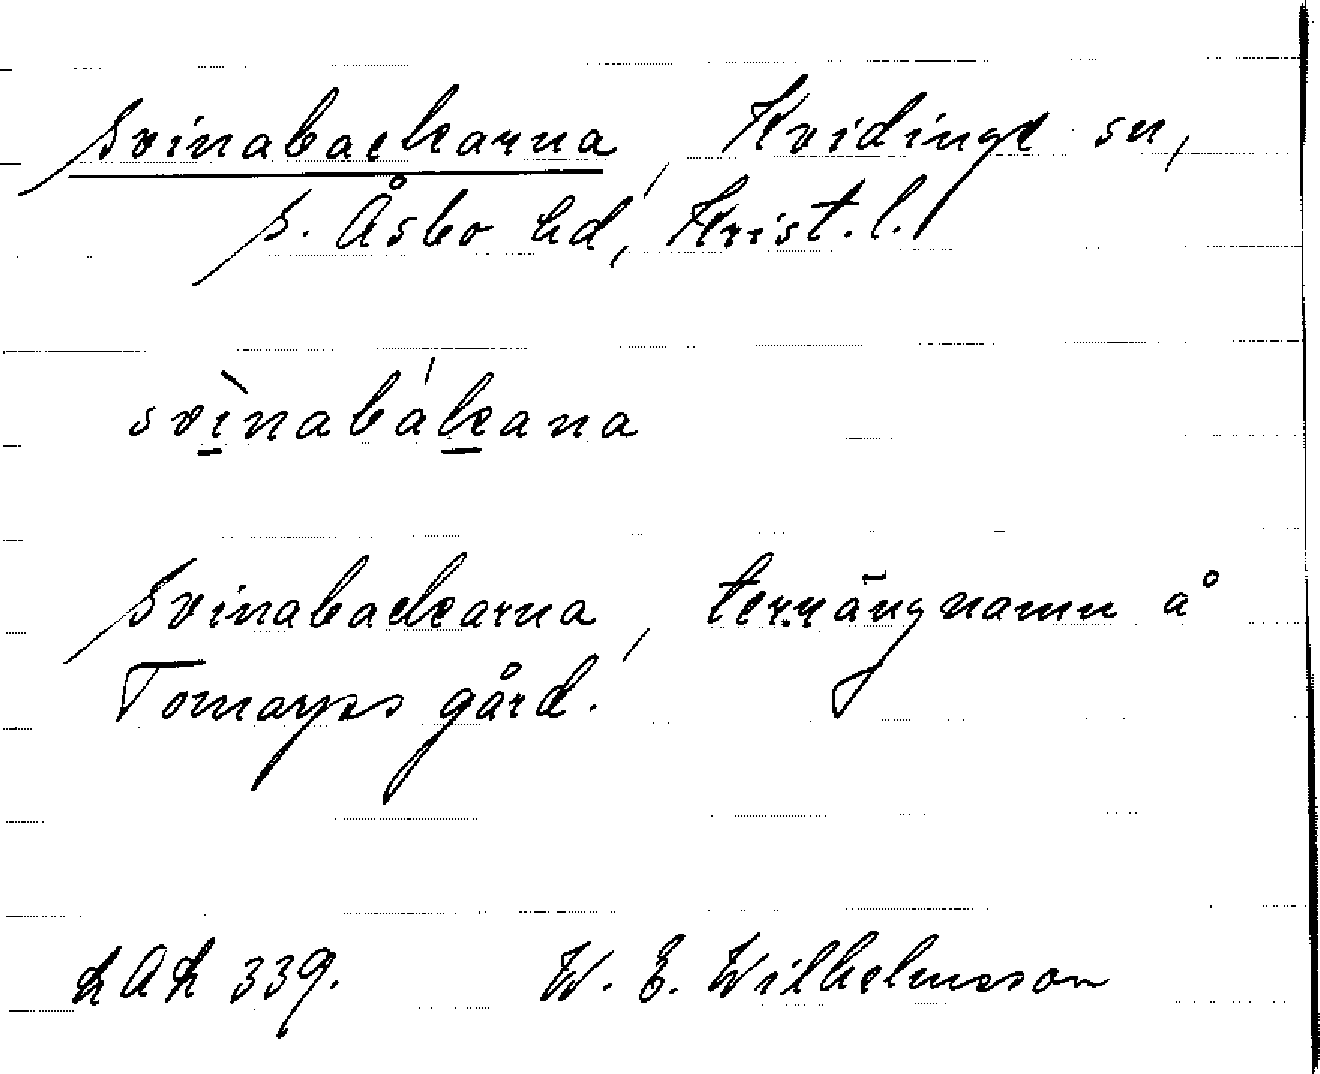 Svinabackarna, Kvidinge sn,
S. Åsbo hd, Krist. l.
svìnabákana
Svinabackarna, terrängnamn å
Tomarps gård.
LAL 339. W. E. Wilhelmsson